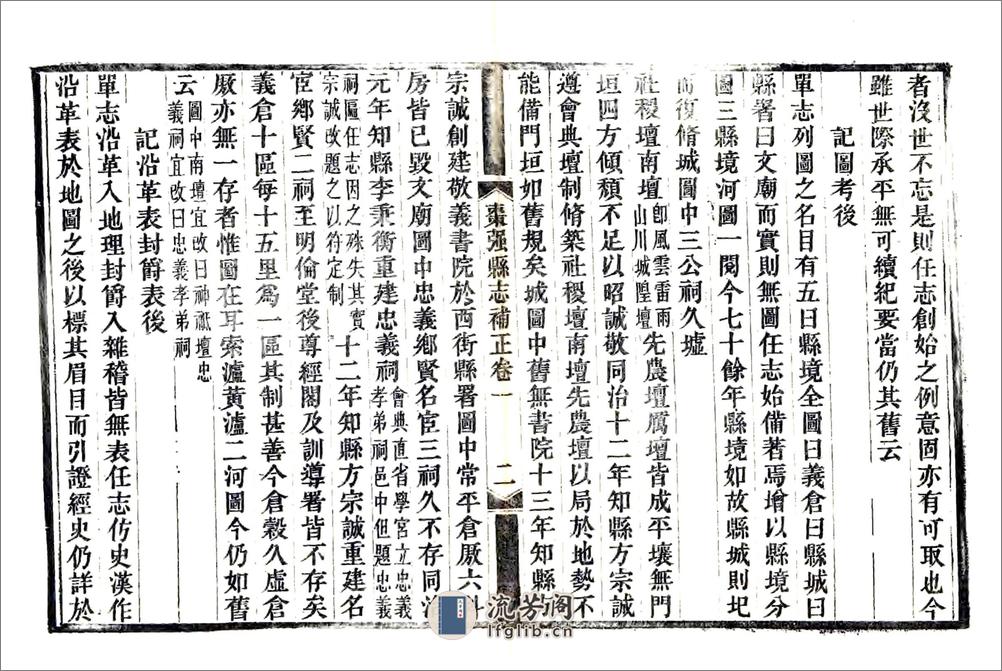 者沒世不忘是則任志創始之例意固亦有可取也今
雖世際承平無可續紀要當仍其舊云
記圖考後
單志列圖之名目有五曰縣境全圖曰義倉曰縣城曰
縣署曰文廟而實則無圖任志始備著焉增以縣境分
圖三縣境河圖一閱今七十餘年縣境如故縣城則圮
而復脩城圖中三公祠久墟
社稷壇南壇卽風雲雷雨山川城隍壇先農壇厲壇皆成平壤無門
垣四方傾頹不足以昭誠敬同治十二年知縣方宗誠
遵會典壇制脩築社稷壇南壇先農壇以局於地勢不
能備門垣如舊規矣城圖中舊無書院十三年知縣
棗强縣志補正卷一 二
宗誠創建敬義書院於西街縣署圖中常平倉厫六科
房皆已毀文廟圖中忠義鄉賢名宦三祠久不存同治
元年知縣李秉衡重建忠義祠會典直省學宮立忠義孝弟祠邑中但題忠義
祠區任志因之殊失其實宗誠改題之以符定制十二年知縣方宗誠重建名
宦鄉賢二祠至明倫堂後尊經閣及訓導署皆不存矣
義倉十區每十五里爲一區其制甚善今倉穀久虛倉
厫亦無一存者惟圖在耳索瀘黃瀘二河圖今仍如舊
云圖中南壇宜改曰神祗壇忠義祠宜改曰忠義孝弟祠
記沿革表封爵表後
單志沿革入地理封爵入雜稽皆無表任志仿史漢作
沿革表於地圖之後以標其眉目而引證經史仍詳於
流芳閣
lfglib.cn